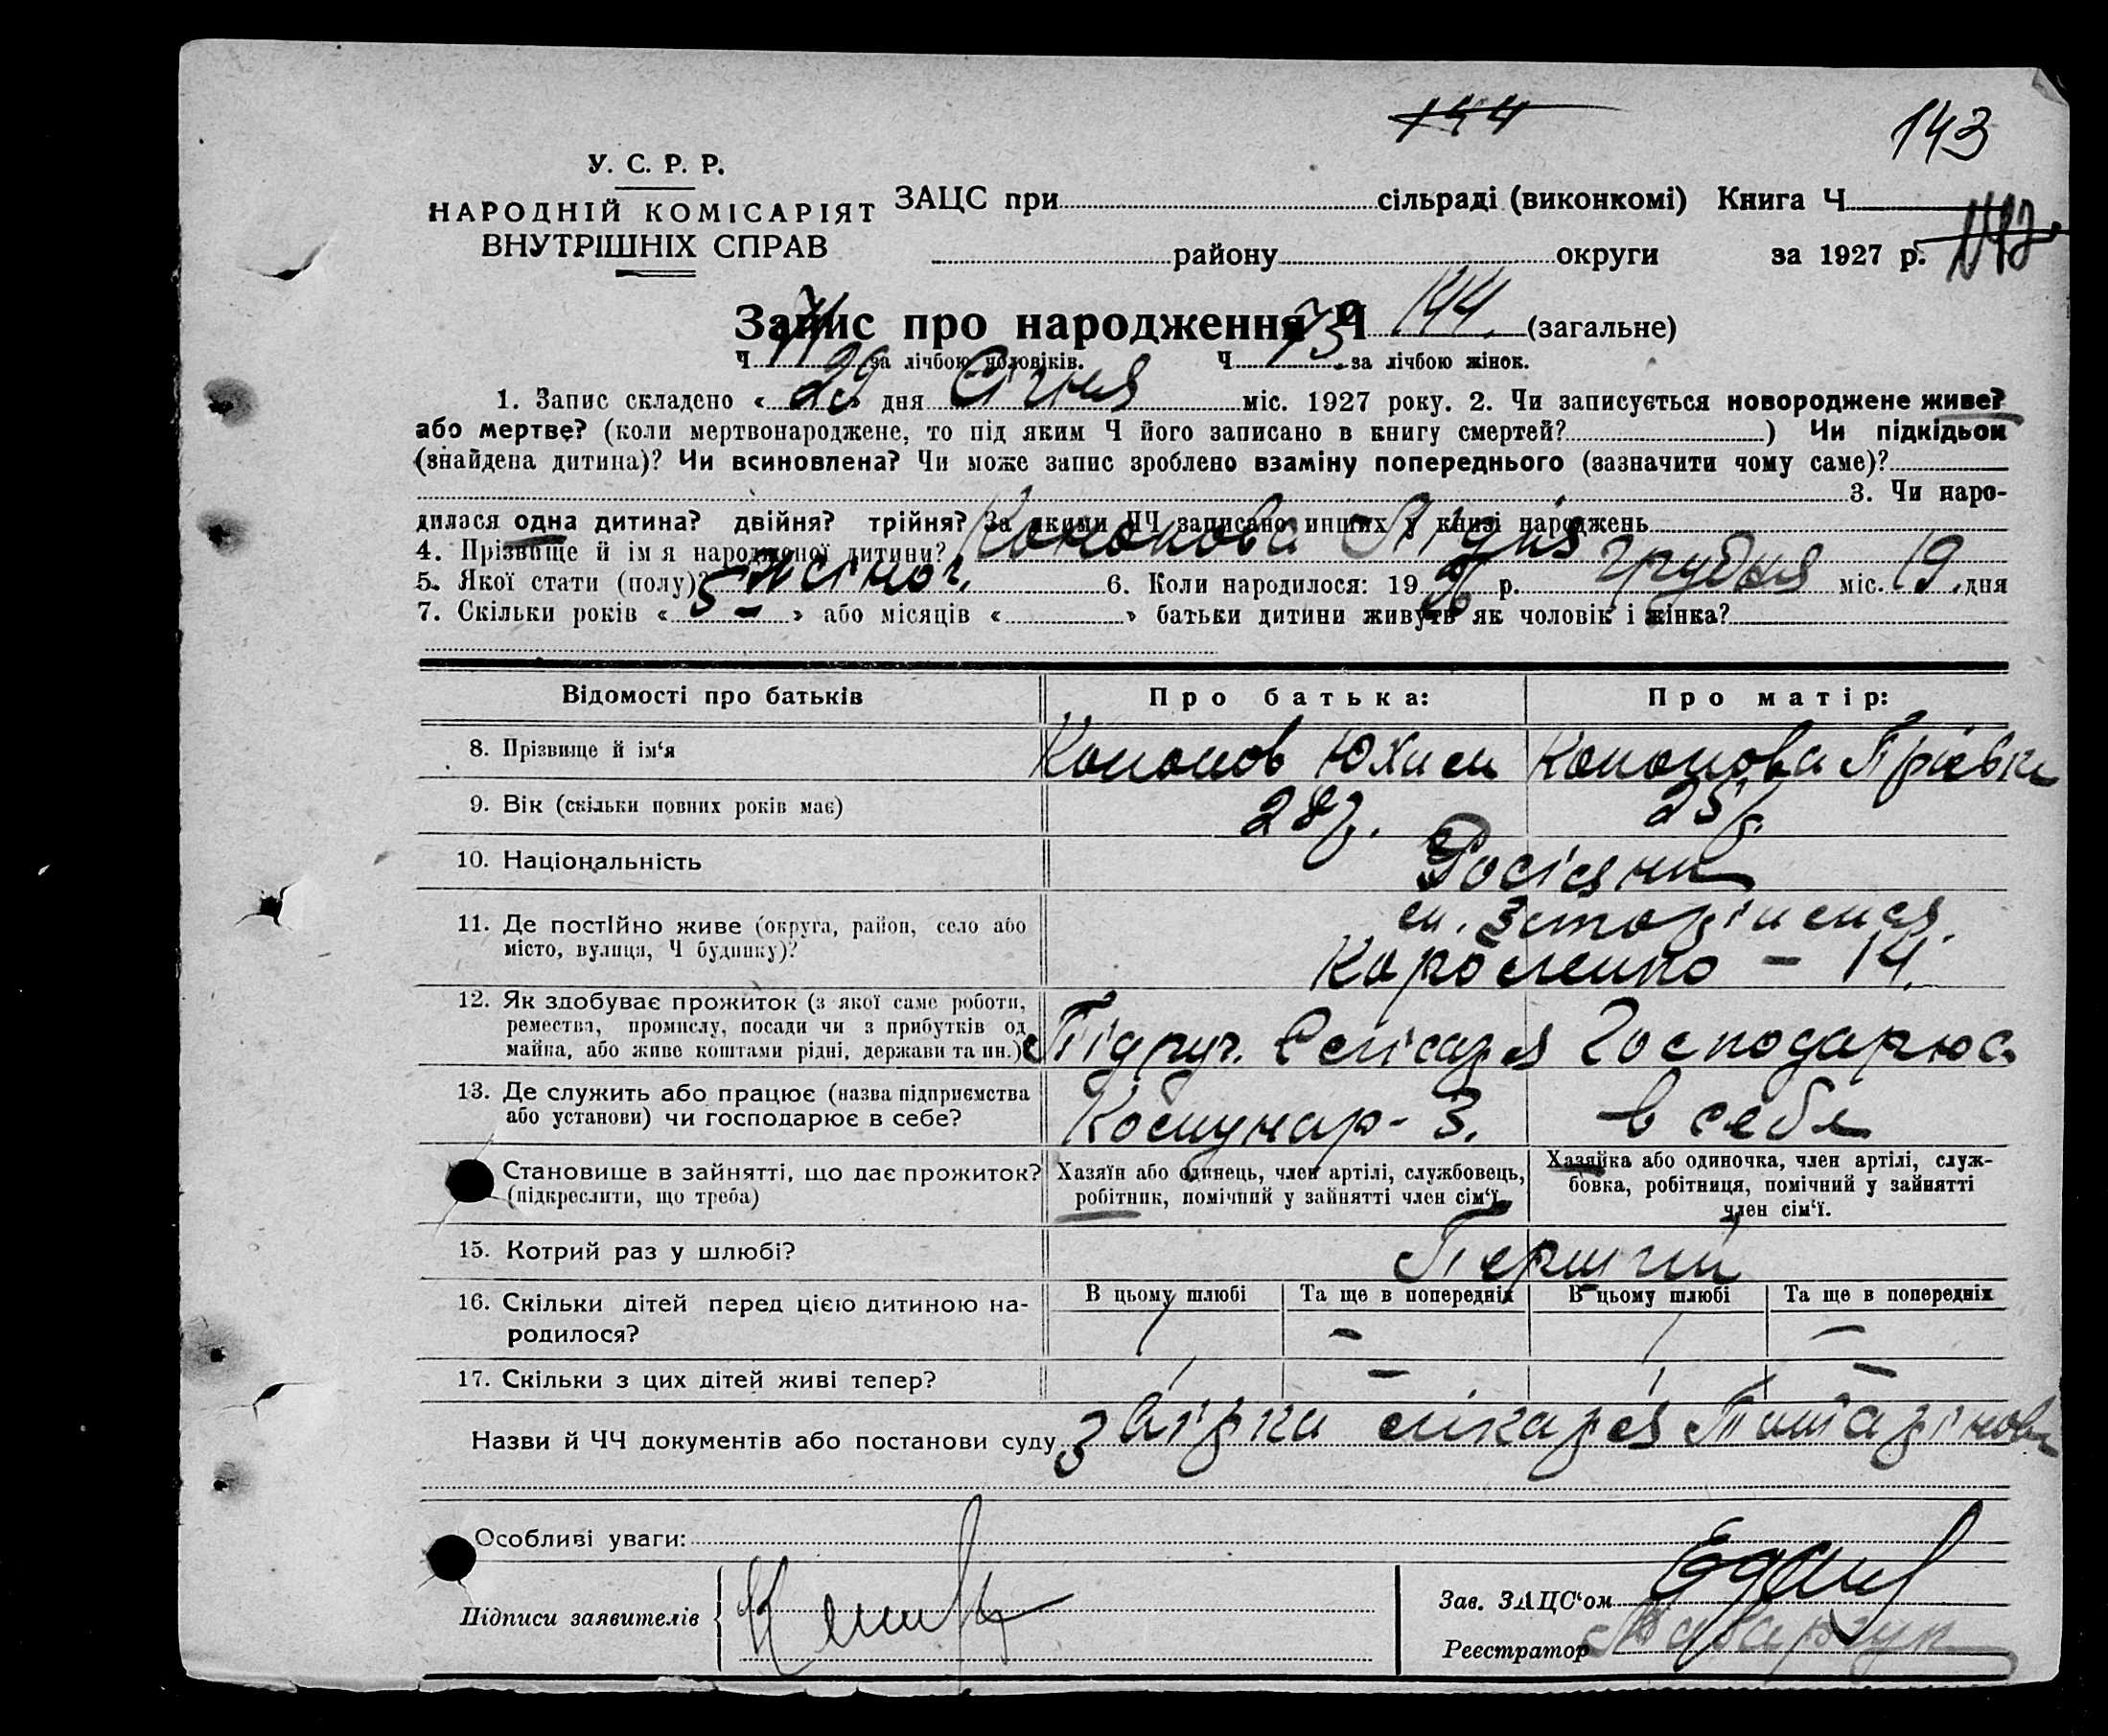 144
143
У. С. Р. Р.
НАРОДНІЙ КОМІСАРІЯТ
ВНУТРІШНІХ СПРАВ
ЗАЦС при сільраді (виконкомі) Книга Ч
району округи за 1927 р.
Запис про народження Ч 144. (загальне)
Ч 71 за лічбою чоловіків. Ч 73 за лічбою жінок.
1. Запис складено «29» дня Січня міс. 1927 року. 2. Чи записується новороджене живе?
або мертве? (коли мертвонароджене, то під яким Ч його записано в книгу смертей? ) Чи підкідьок
(знайдена дитина)? Чи всиновлена? Чи може запис зроблено взаміну попереднього (зазначити чому саме)?
3. Чи наро-
дилася одна дитина? двійня? трійня? За якими ЧЧ записано инших у книзі народжень
4. Прізвище й ім'я народженої дитини? Кононова Лідія
5. Якої стати (полу)? жіноч. 6. Коли народилося: 1926 р. Грудня міс. 19 дня
7. Скільки років «5» або місяців « » батьки дитини живуть як чоловік і жінка?
Відомості про батьків Про батька: Про матір:
8. Прізвище й ім'я Кононов Юхим Кононова
9. Вік (скільки повних років має) 28р. 25р.
10. Національність Росіяни
11. Де постійно живе (округа, район, село або
місто, вулиця, Ч будинку)?
м. Запоріжжя
Короленко - 14.
12. Як здобуває прожиток (з якої саме роботи,
ремества, промислу, посади чи з прибутків од
майна, або живе коштами рідні, держави та ин.)
Підруч. Слюсаря Господарює
13. Де служить або працює (назва підприємства
або установи) чи господарює в себе?
Комунар-З. в себе
Становище в зайнятті, що дає прожиток?
(підкреслити, що треба)
Хазяїн або одинець, член артілі, службовець,
робітник, помічний у зайнятті член сім'ї.
Хазяйка або одиночка, член артілі, служ-
бовка, робітниця, помічний у зайнятті
член сім'ї.
15. Котрий раз у шлюбі? Перший
16. Скільки дітей перед цією дитиною на-
родилося?
В цьому шлюбі Та ще в попередніх В цьому шлюбі Та ще в попередніх
1 - 1 -
17. Скільки з цих дітей живі тепер? 1 - 1 -
Назви й ЧЧ документів або постанови суду Довідка лікаря
Особливі уваги:
Підписи заявителів
Зав. ЗАЦС'ом
Реєстратор